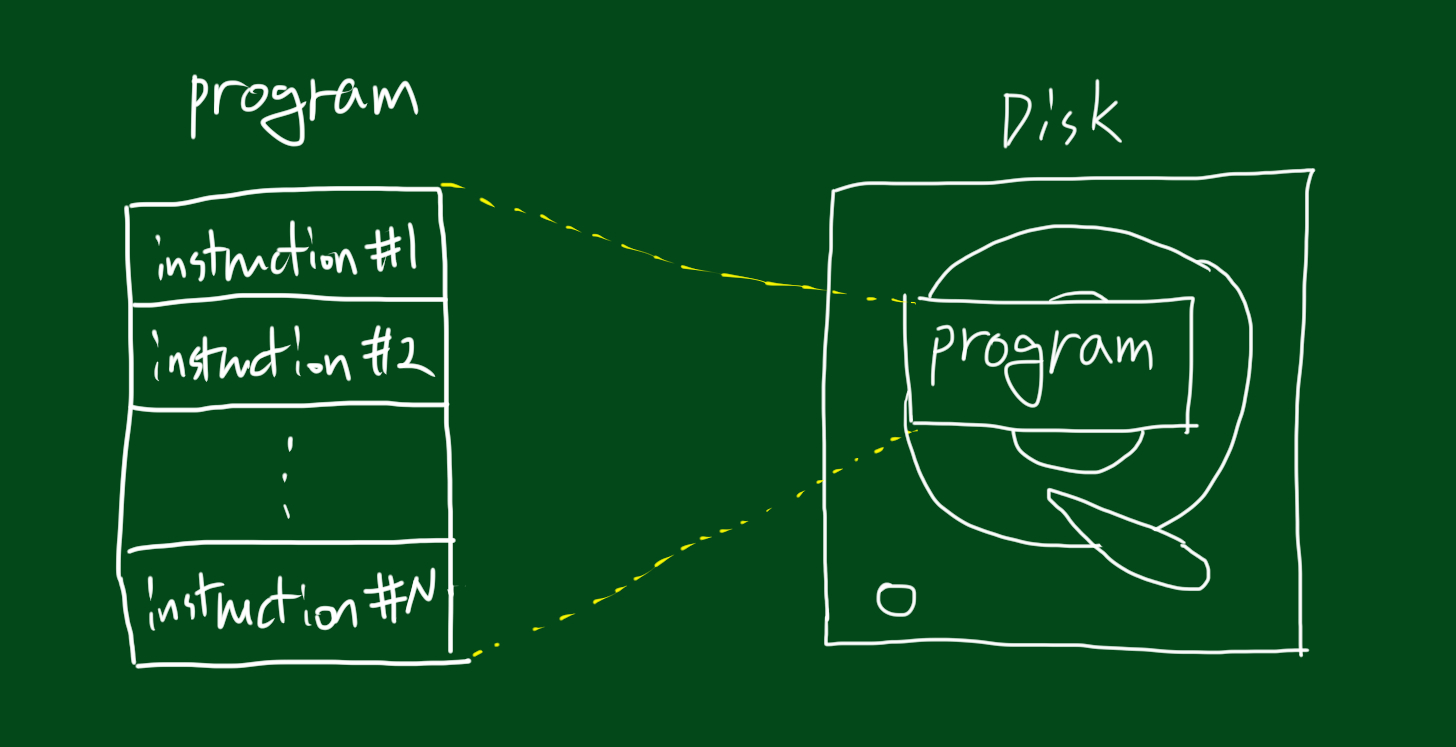 program
instruction #1
instruction #2
instruction #N
Disk
program